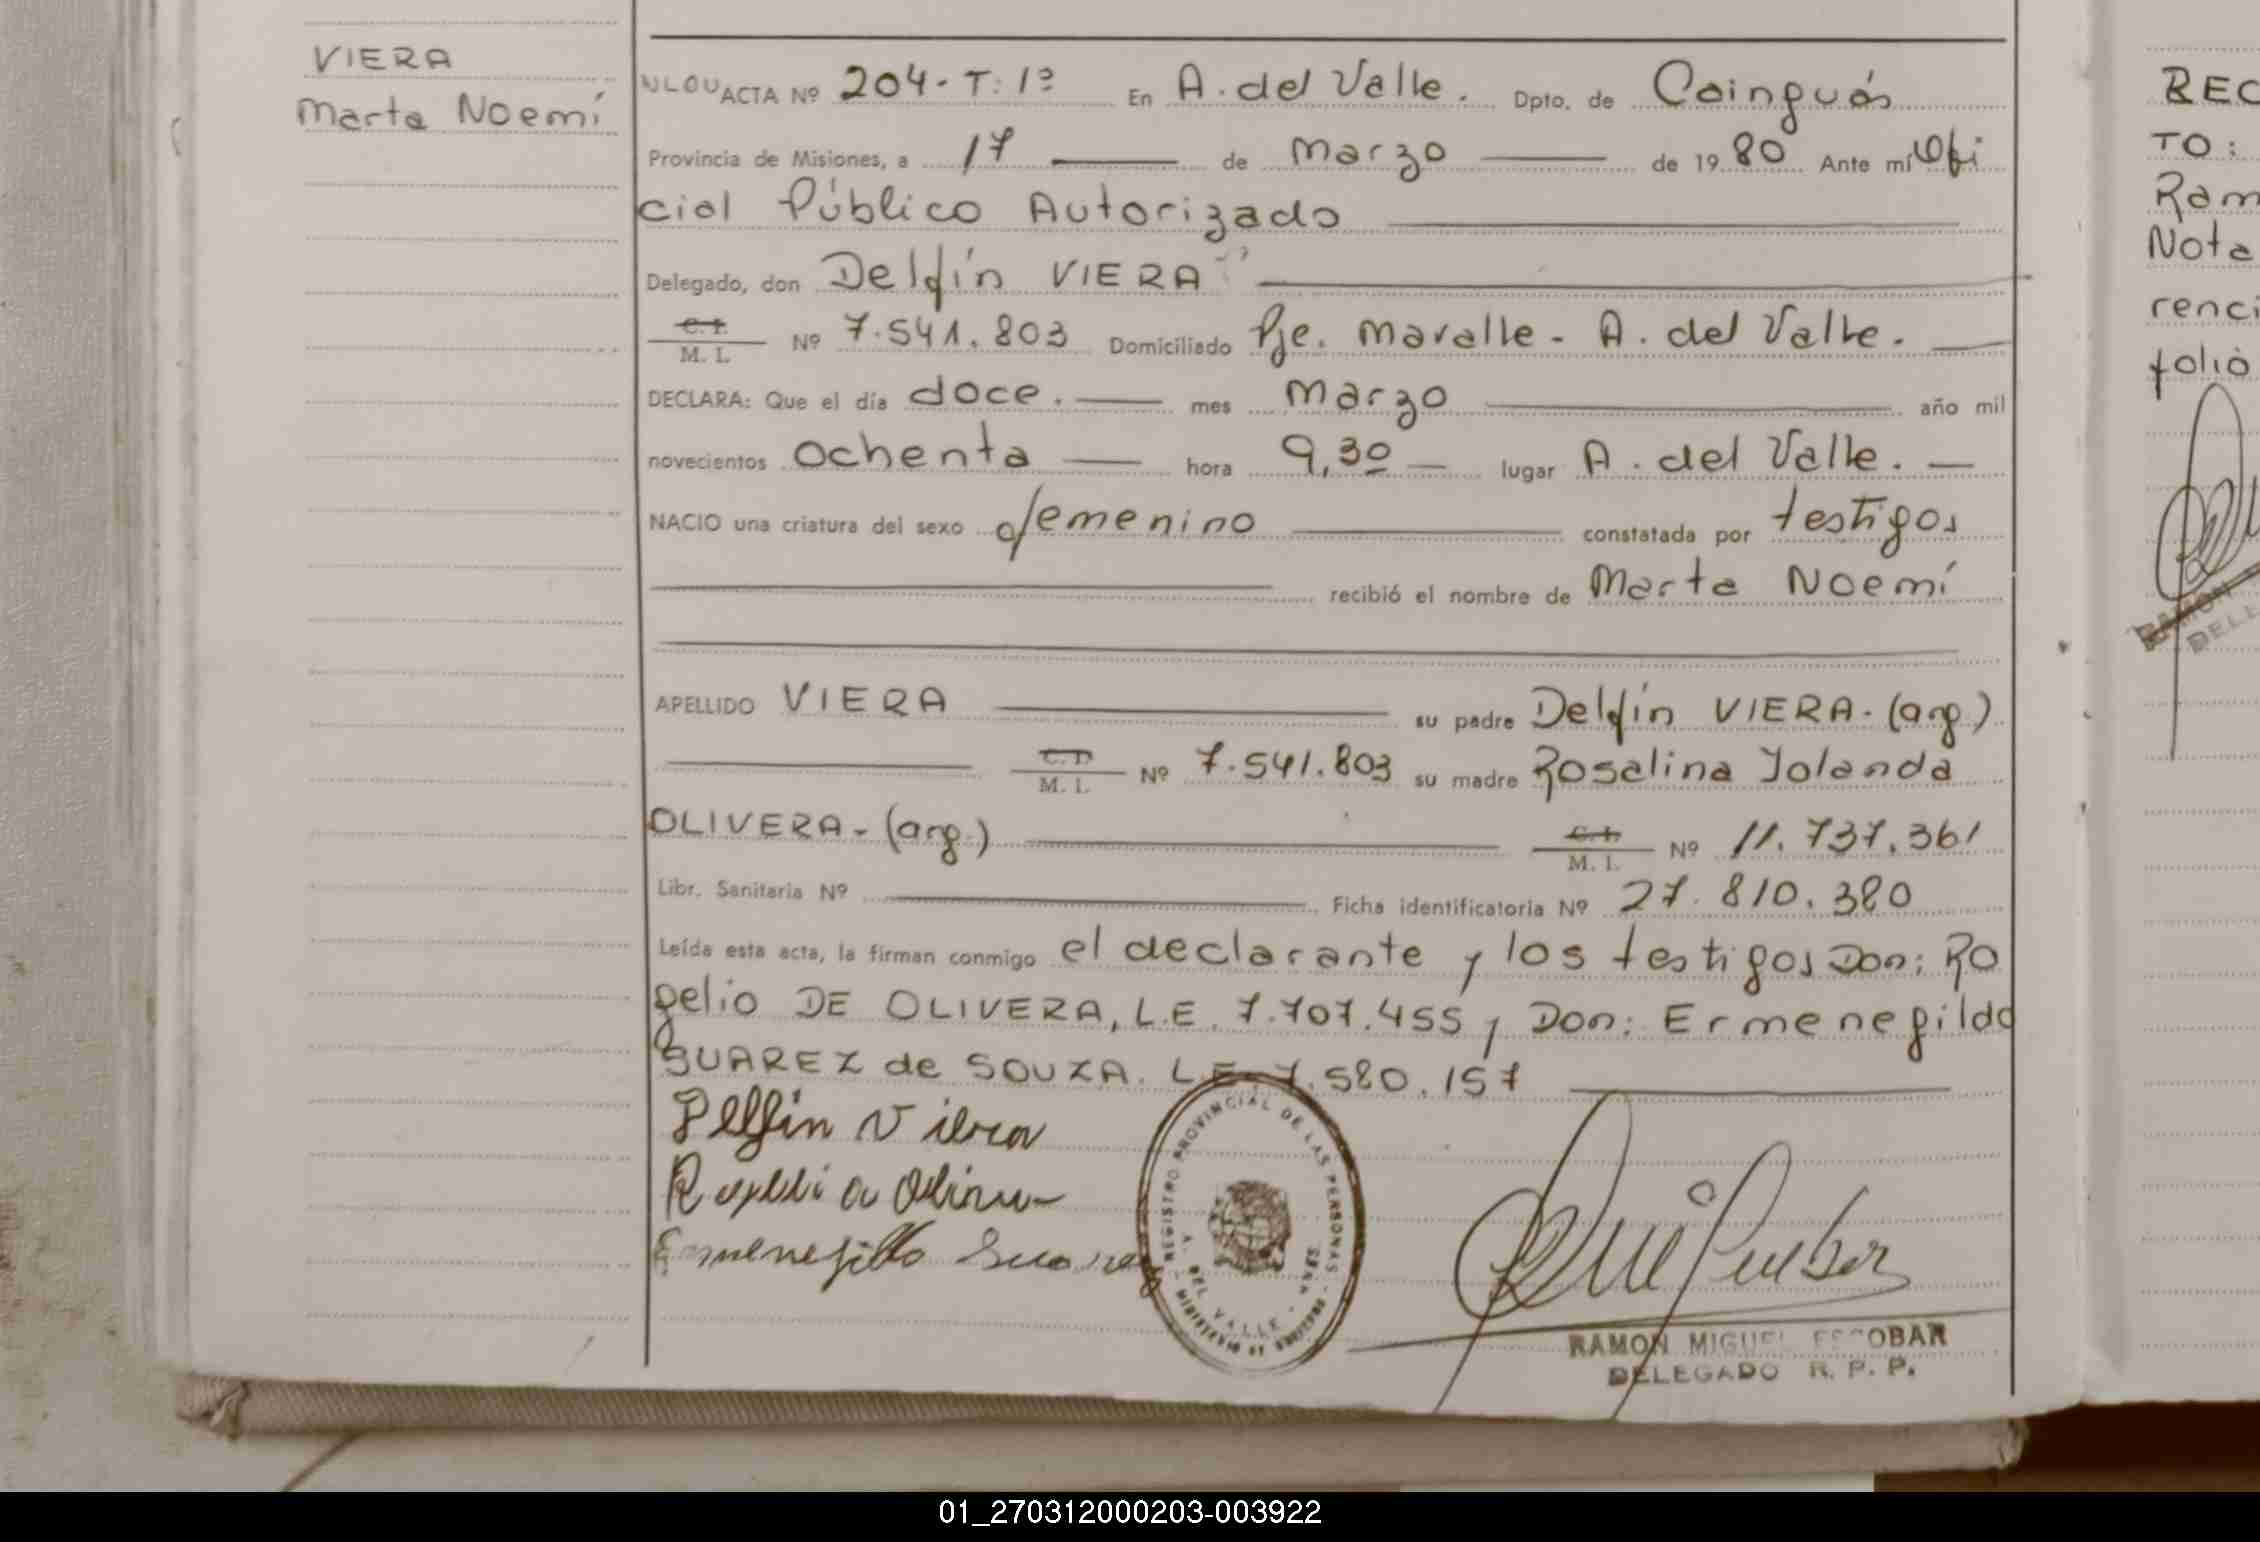 VIERA
Marta Noemí
ACTA Nº 204 - T: 1º En A. del Valle. Dpto. de Cainguás
Provincia de Misiones, a 17 de Marzo de 1980 Ante mí Ofi
cial Público Autorizado
Delegado, don Delfín VIERA
C. I. M. I. Nº 7.541.803 Domiciliado Pje. Maralle - A. del Valle.
DECLARA: Que el día doce. mes Marzo año mil
novecientos Ochenta hora 9,30 lugar A. del Valle.
NACIO una criatura del sexo femenino constatada por testigos
recibió el nombre de Marta Noemí
APELLIDO VIERA su padre Delfín VIERA - (arg.)
C. I. M. I. Nº 7.541.803 su madre Rosalina Iolanda
OLIVERA - (arg.) C. I. M. I. Nº 11.737.361
Libr. Sanitaria Nº Ficha identificatoria Nº 27.810.380
Leída esta acta, la firman conmigo el declarante y los testigos Don: Ro
gelio DE OLIVERA, L.E. 7.707.455 y Don: Ermenegildo
SUAREZ de SOUZA. L.E. 7.580.157
Delfin Viera
Ermenegildo Suarez
REGISTRO PROVINCIAL DE LAS PERSONAS
A. DEL VALLE
RAMON MIGUEL ESCOBAR
DELEGADO R. P. P.
REC
TO:
Ram
Nota
renci
folio
RAMON
DELE
01_270312000203-003922